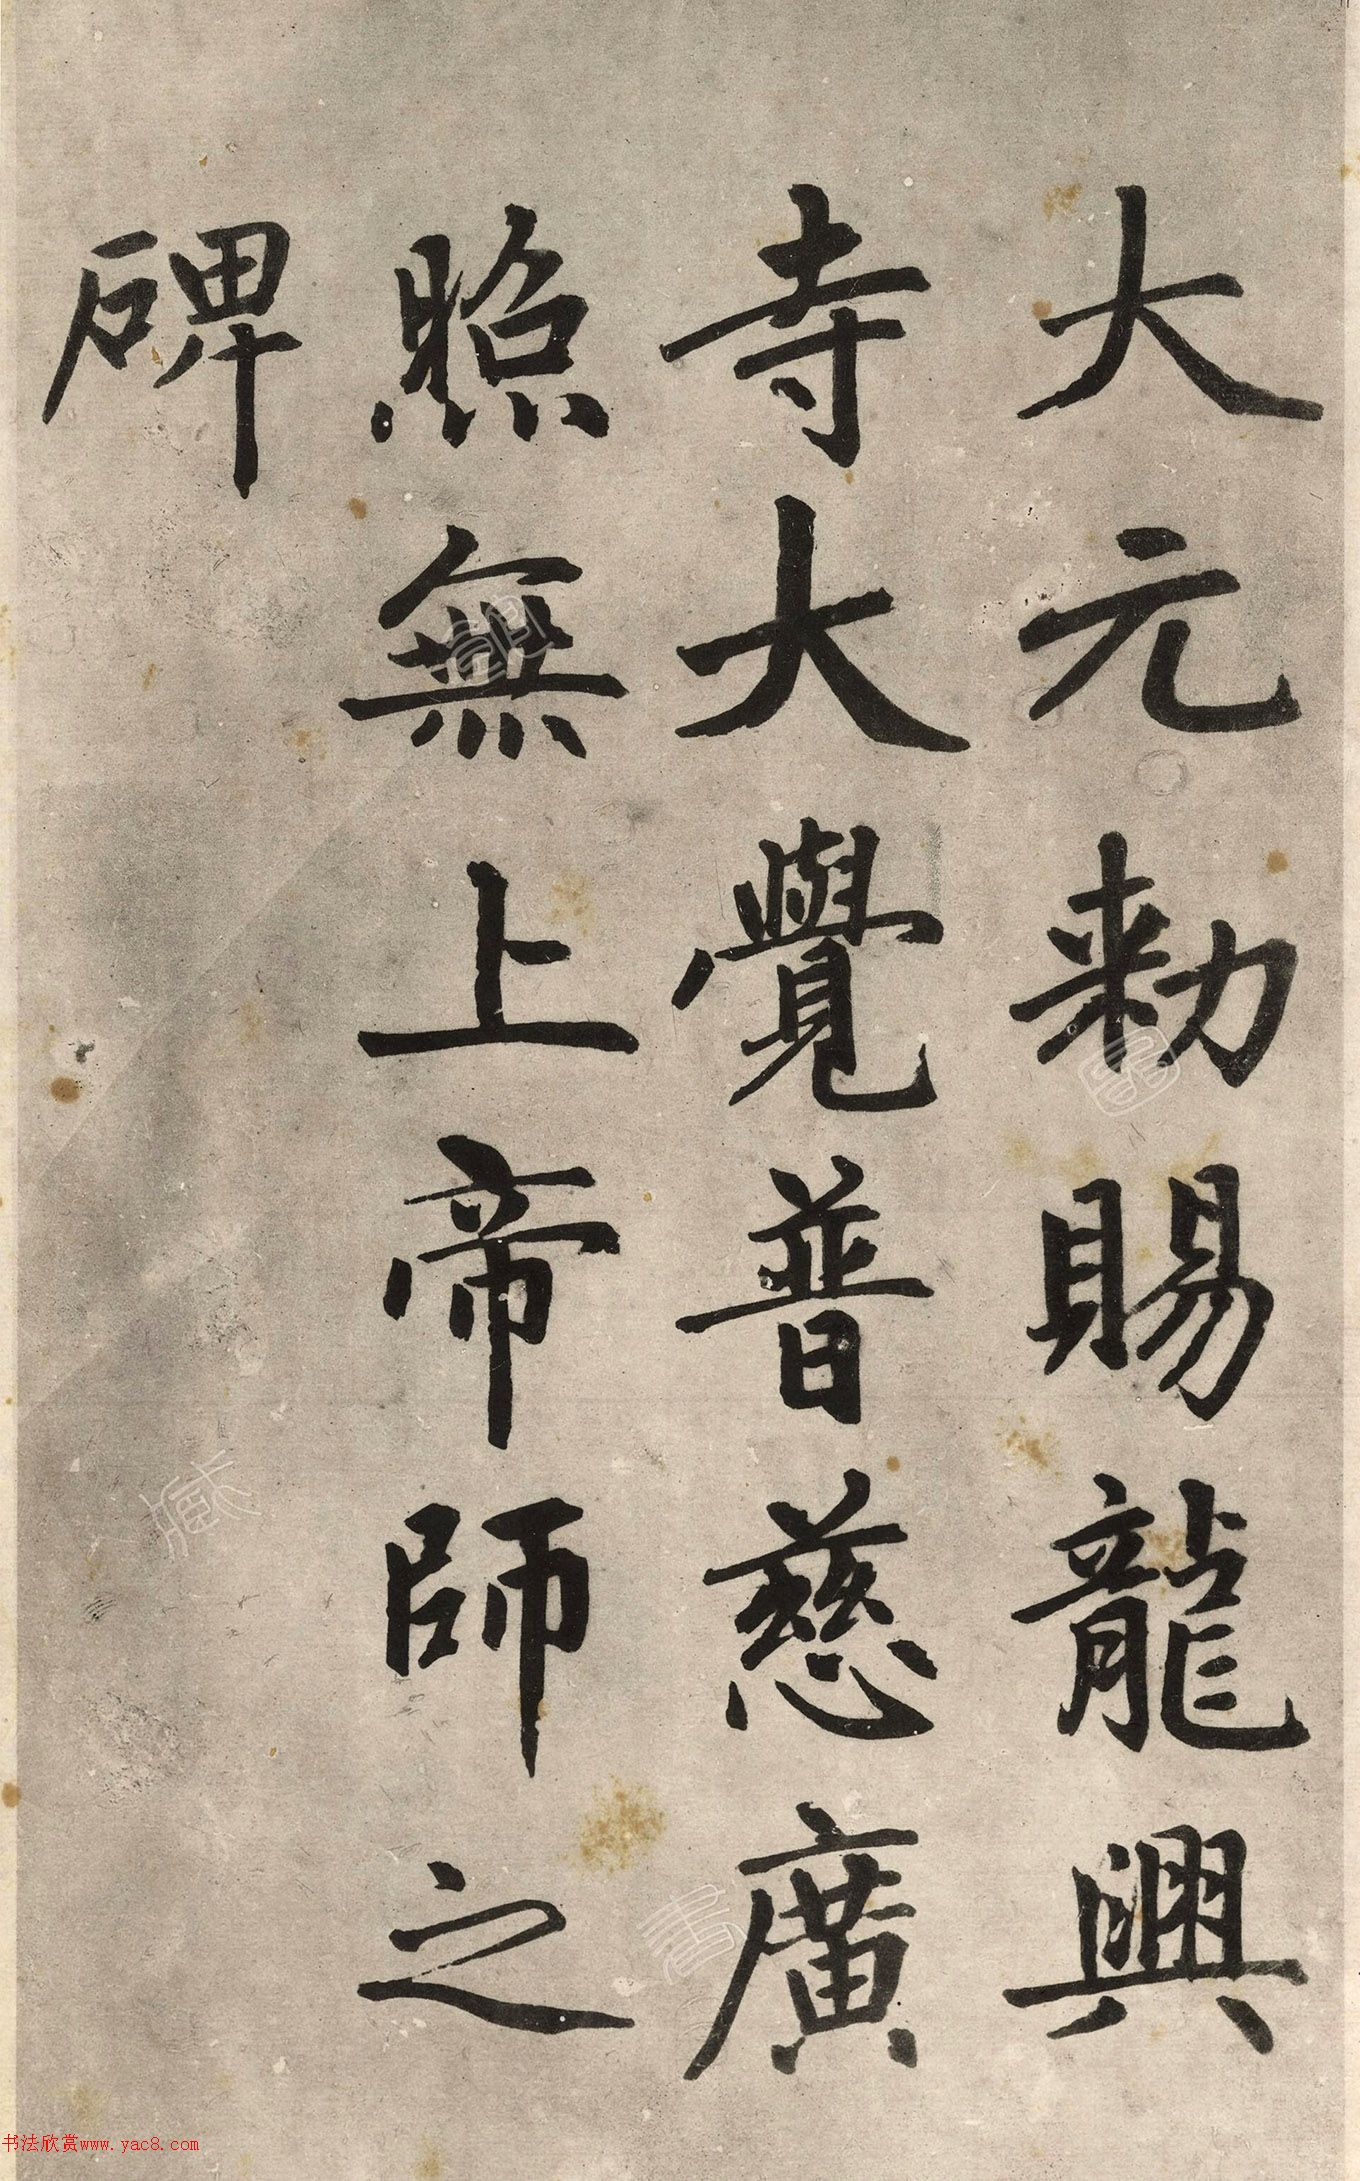 大元勑賜龍興
寺大覺普慈廣
照無上帝師之
碑
书法欣赏www.yac8.com